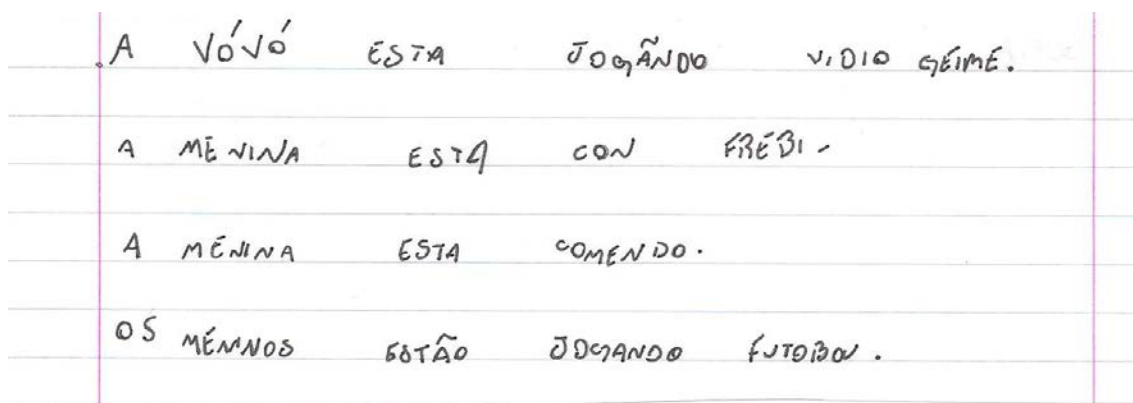 .A VÓVÓ ESTA JOGÃNDO VIDIO GÉIME.
A MÉNINA ESTA CON FRÉBI.
A MÉNINA ESTA COMENDO.
OS MÉNINOS ESTÃO JOGANDO FUTOBOU.